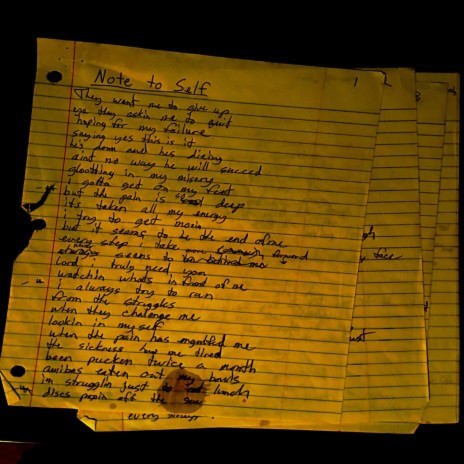 Note to Self
1
They want me to give up
ye they askin me to quit
hoping for my failure
saying yes this is it
his down and his dieing
aint no way he will succeed
gloatting in my misery
i gotta get on my feet
but the pain is deep
its taken all my energy
i try to get movin
but it seems to be the end of me
every step i take forward
always seems to
Lord i truly need you
watchin whats in front of me
i always try to run
from the struggles
when they chalenge me
lookin in myself
when the pain has me
the sickness has me tired
been pucken twice a month
amibas eaten out my bowls
im strugglin just lunch
discs popin off the
every
face